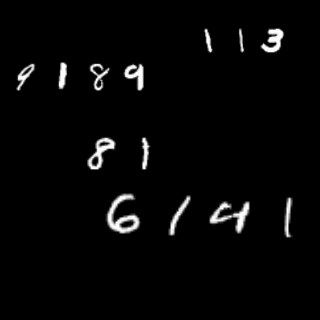 113
9189
81
6141